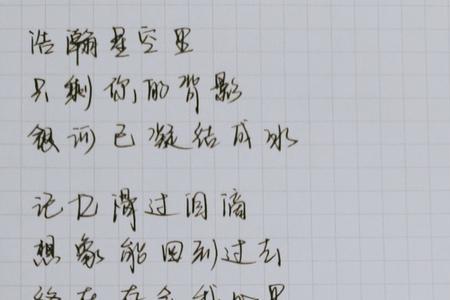 浩瀚星空里
只剩你的背影
银河已凝结成冰
记忆滑过泪滴
想象能回到过去